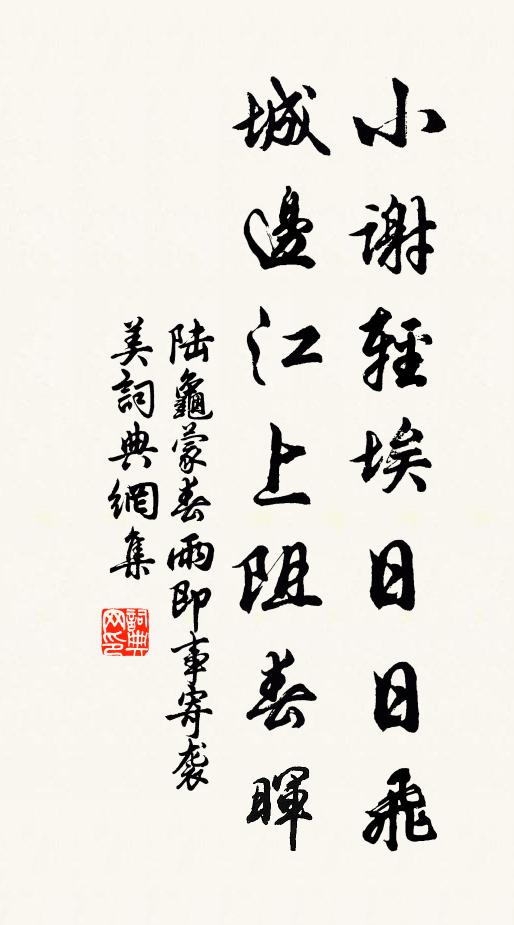 小謝輕埃日日飛
城邊江上阻春暉
陆龜蒙春雨即事寄袭
美詞典網集
詞典
网印